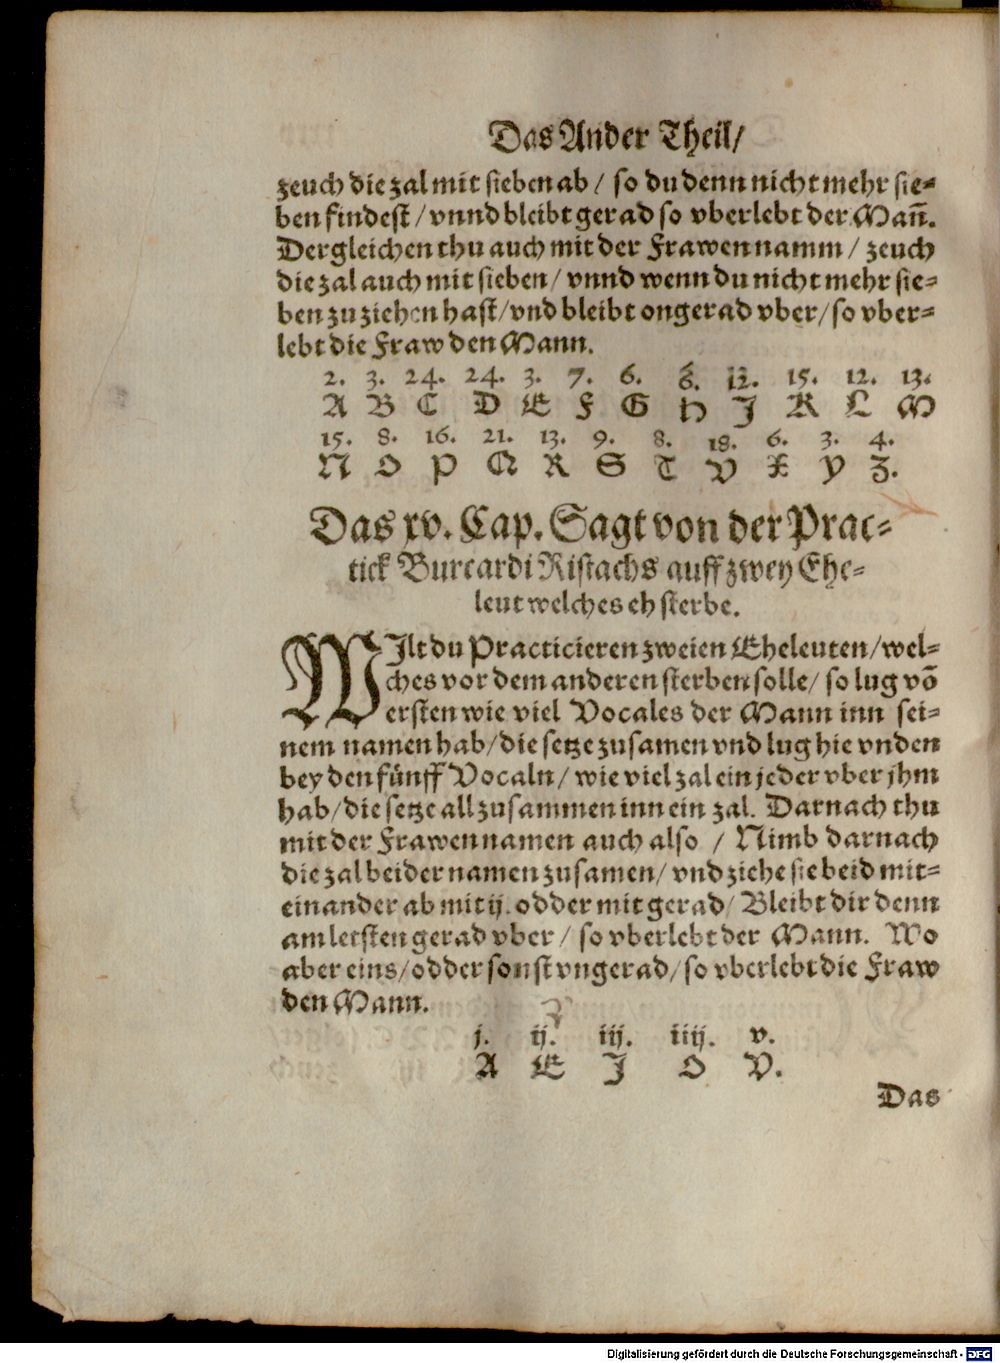 Das Ander Theil/
zeuch die zal mit sieben ab / so du denn nicht mehr sie-
ben findest / vnnd bleibt gerad so vberlebt der Mañ.
Dergleichen thu auch mit der Frawen namm / zeuch
die zal auch mit sieben / vnnd wenn du nicht mehr sie-
ben zu ziehen hast/vnd bleibt ongerad vber/so vber-
lebt die Fraw den Mann.
2. 3. 24. 24. 3. 7. 6. 6. 12. 15. 12. 13.
A B C D E F G H J K L M
15. 8. 16. 21. 13. 9. 8. 18. 6. 3. 4.
N O P Q R S T V X Y Z.
Das xv. Cap. Sagt von der Prac-
tick Burcardi Ristachs auff zwey Ehe-
leut welches eh sterbe.
WJlt du Practicieren zweien Eheleuten/wel-
ches vor dem anderen sterben solle/ so lug võ
ersten wie viel Vocales der Mann inn sei-
nem namen hab/die setze zusamen vnd lug hie vnden
bey den fünff Vocaln/ wie viel zal ein jeder vber jhm
hab/die setze all zusammen inn ein zal. Darnach thu
mit der Frawen namen auch also / Nimb darnach
die zal beider namen zusamen/ vnd ziehe sie beid mit-
einander ab mit ij. odder mit gerad/ Bleibt dir denn
am letsten gerad vber / so vberlebt der Mann. Wo
aber eins/odder sonst vngerad/so vberlebt die Fraw
den Mann.
j. ij. iij. iiij. v.
A E J O V.
Das
Digitalisierung gefördert durch die Deutsche Forschungsgemeinschaft - DFG